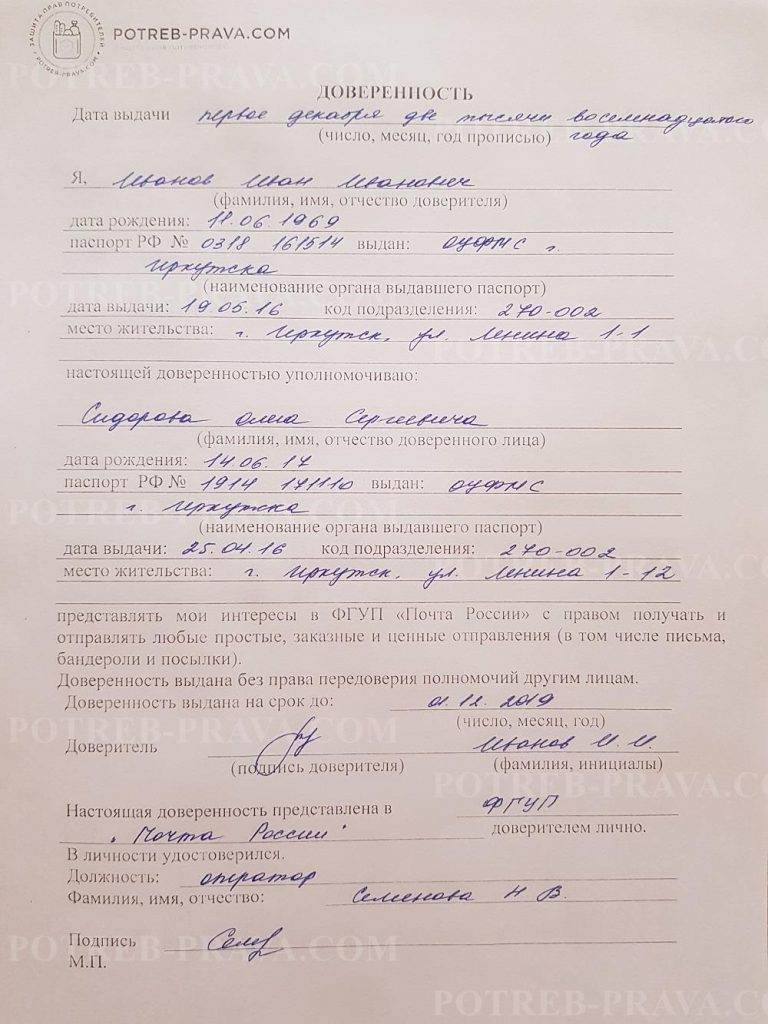 ЗАЩИТА ПРАВ ПОТРЕБИТЕЛЕЙ
POTREB-PRAVA.COM
POTREB-PRAVA.COM
ДОВЕРЕННОСТЬ
Дата выдачи первое декабря две тысячи восемнадцатого
(число, месяц, год прописью) года
Я, Иванов Иван Иванович
(фамилия, имя, отчество доверителя)
дата рождения: 11.06.1969
паспорт РФ № 0318 161514 выдан: ОУФМС г.
Иркутска
(наименование органа выдавшего паспорт)
дата выдачи: 19.05.16 код подразделения: 270-002
место жительства: г. Иркутск, ул. Ленина 1-1
настоящей доверенностью уполномочиваю:
Сидорова Олега Сергеевича
(фамилия, имя, отчество доверенного лица)
дата рождения: 14.06.17
паспорт РФ № 1914 171110 выдан: ОУФМС
г. Иркутска
(наименование органа выдавшего паспорт)
дата выдачи: 25.04.16 код подразделения: 270-002
место жительства: г. Иркутск, ул. Ленина 1-12
представлять мои интересы в ФГУП «Почта России» с правом получать и
отправлять любые простые, заказные и ценные отправления (в том числе письма,
бандероли и посылки).
Доверенность выдана без права передоверия полномочий другим лицам.
Доверенность выдана на срок до: 01.12.2019
(число, месяц, год)
Доверитель Иванов И. И.
(подпись доверителя) (фамилия, инициалы)
Настоящая доверенность представлена в ФГУП
"Почта России" доверителем лично.
В личности удостоверился.
Должность: оператор
Фамилия, имя, отчество: Семенова Н В.
Подпись
М.П.